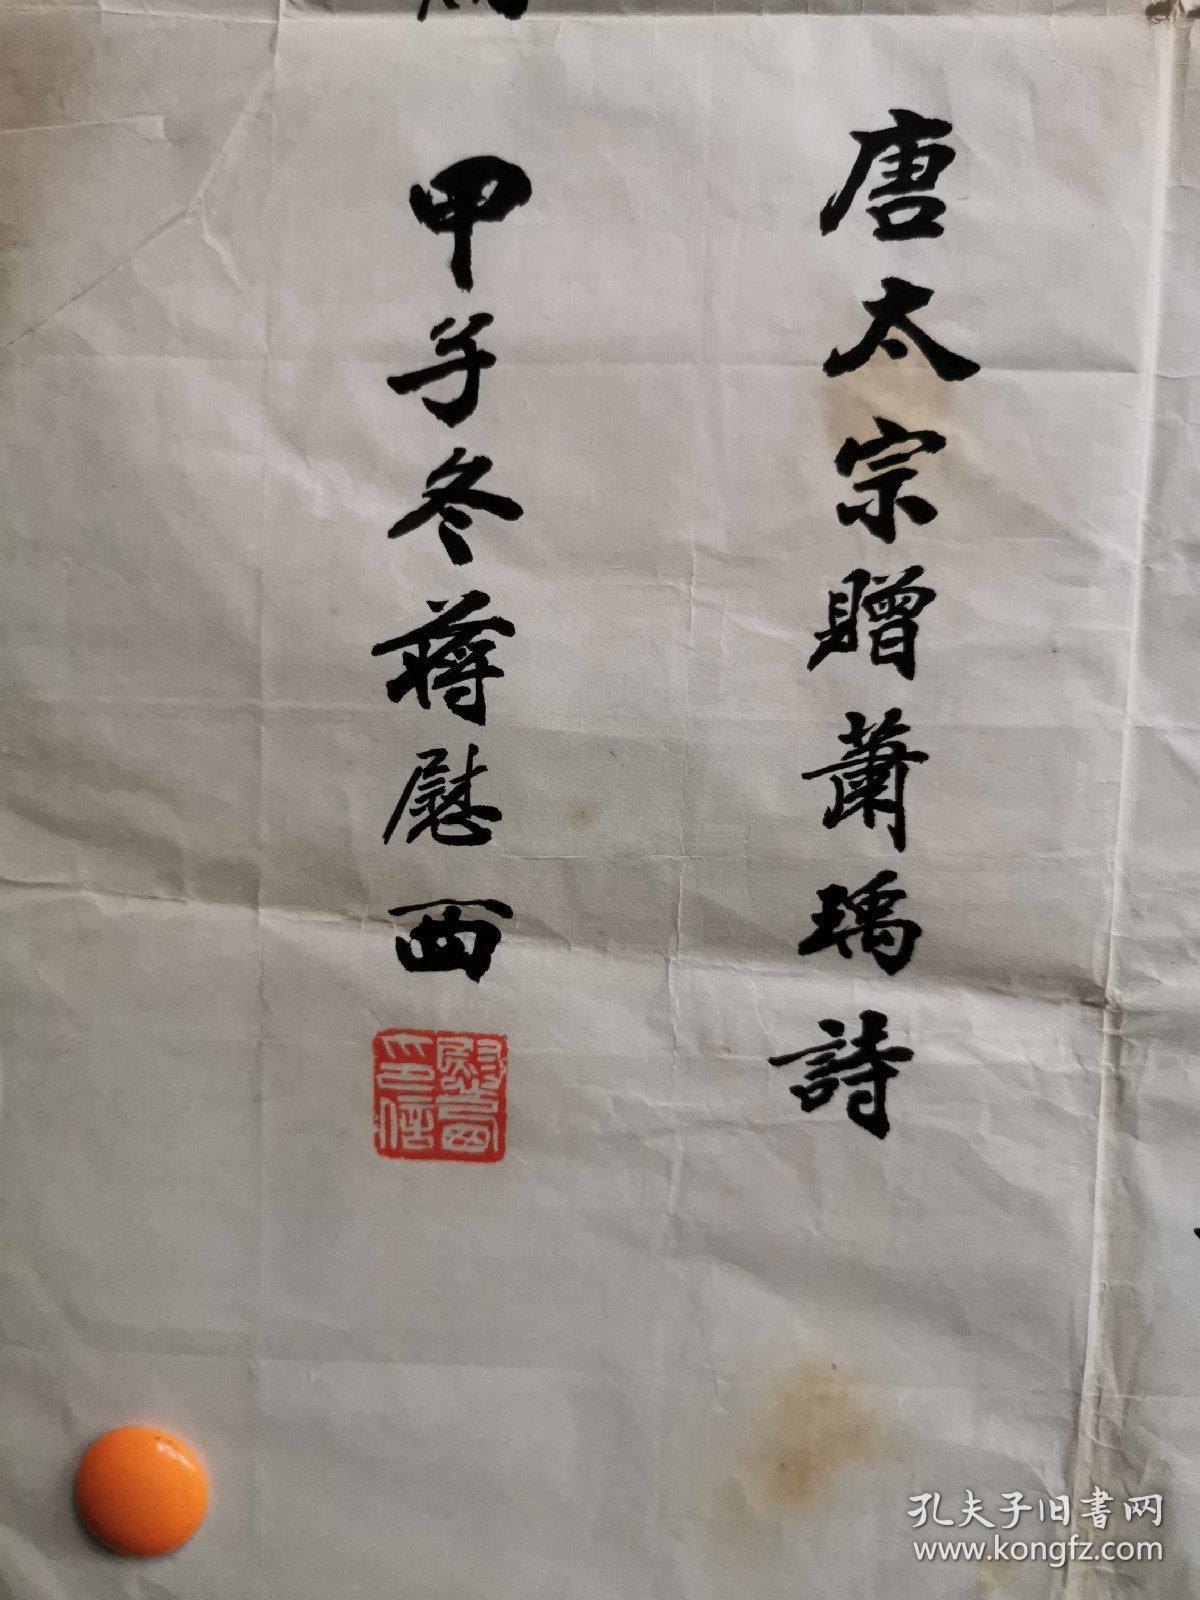 唐太宗贈蕭瑀詩
甲子冬蔣慰西
慰西
印信
孔夫子旧書网
www.kongfz.com